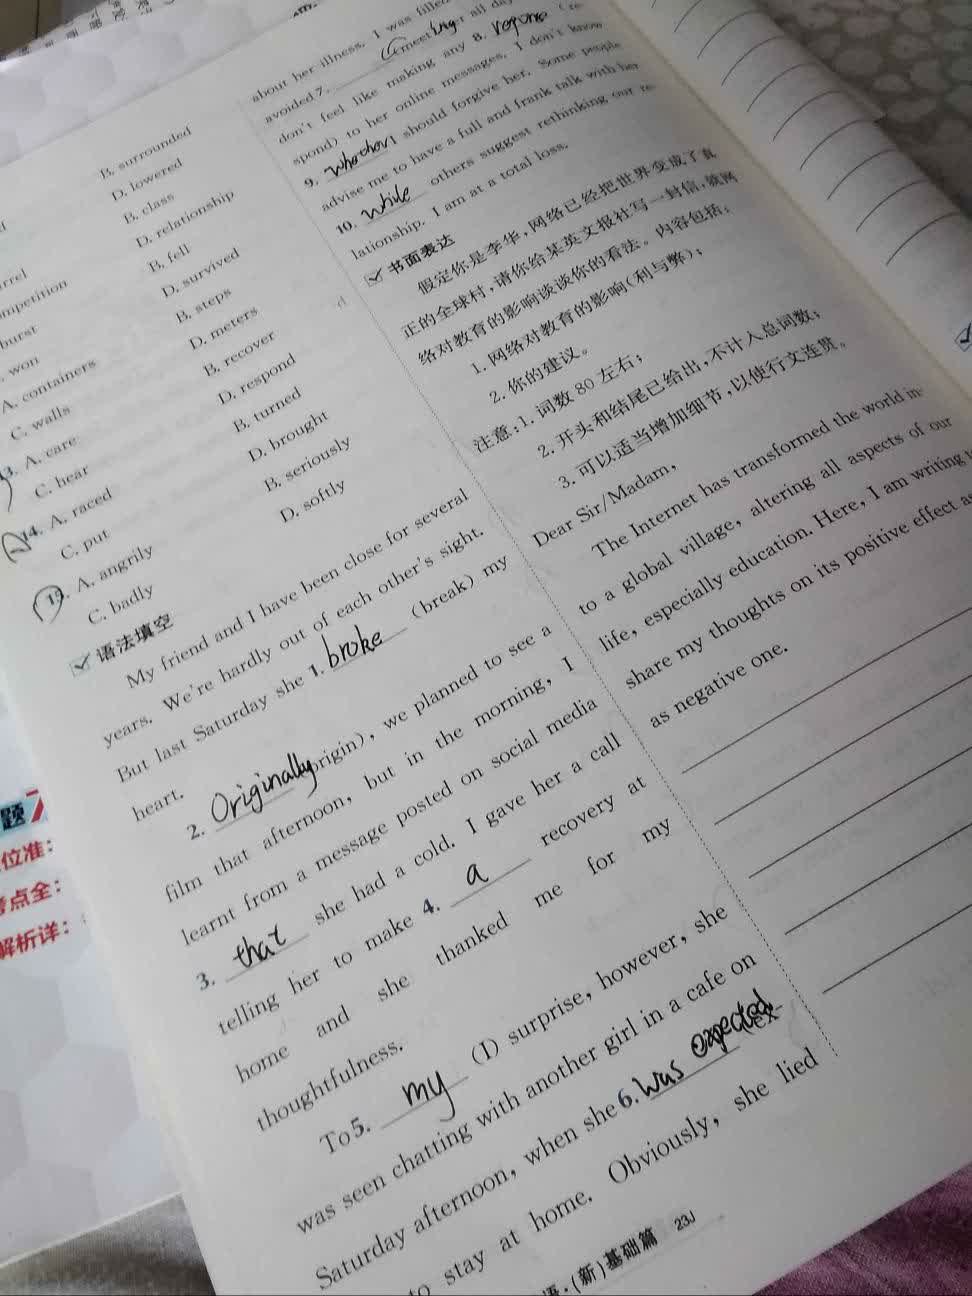 B. surrounded
D. lowered
B. class
D. relationship
B. fell
D. survived
B. steps
A. containers
D. meters
C. walls
B. recover
A. care
D. respond
C. hear
B. turned
14. A. raced
D. brought
C. put
B. seriously
15. A. angrily
D. softly
C. badly
语法填空
My friend and I have been close for several
years. We're hardly out of each other's sight.
But last Saturday she 1. broke (break) my
heart.
2. Originally origin), we planned to see a
film that afternoon, but in the morning, I
learnt from a message posted on social media
3. that she had a cold. I gave her a call
telling her to make 4. a recovery at
home and she thanked me for my
thoughtfulness.
To 5. my (I) surprise, however, she
was seen chatting with another girl in a cafe on
Saturday afternoon, when she 6. was expected
to stay at home. Obviously, she lied
about her illness. I was filled
avoided 7. meeting all day
don't feel like making any 8.
spond) to her online messages. I don't know
9. should forgive her. Some people
advise me to have a full and frank talk with her
10. while others suggest rethinking our re-
lationship. I am at a total loss.
书面表达
假定你是李华,网络已经把世界变成了真
正的全球村,请你给某英文报社写一封信,就网
络对教育的影响谈谈你的看法。内容包括:
1. 网络对教育的影响(利与弊);
2. 你的建议。
注意:1. 词数 80 左右;
2. 开头和结尾已给出,不计入总词数;
3. 可以适当增加细节,以使行文连贯。
Dear Sir/Madam,
The Internet has transformed the world in-
to a global village, altering all aspects of our
life, especially education. Here, I am writing to
share my thoughts on its positive effect as
as negative one.
(新)基础篇 23J
题
位准:
考点全:
解析详: